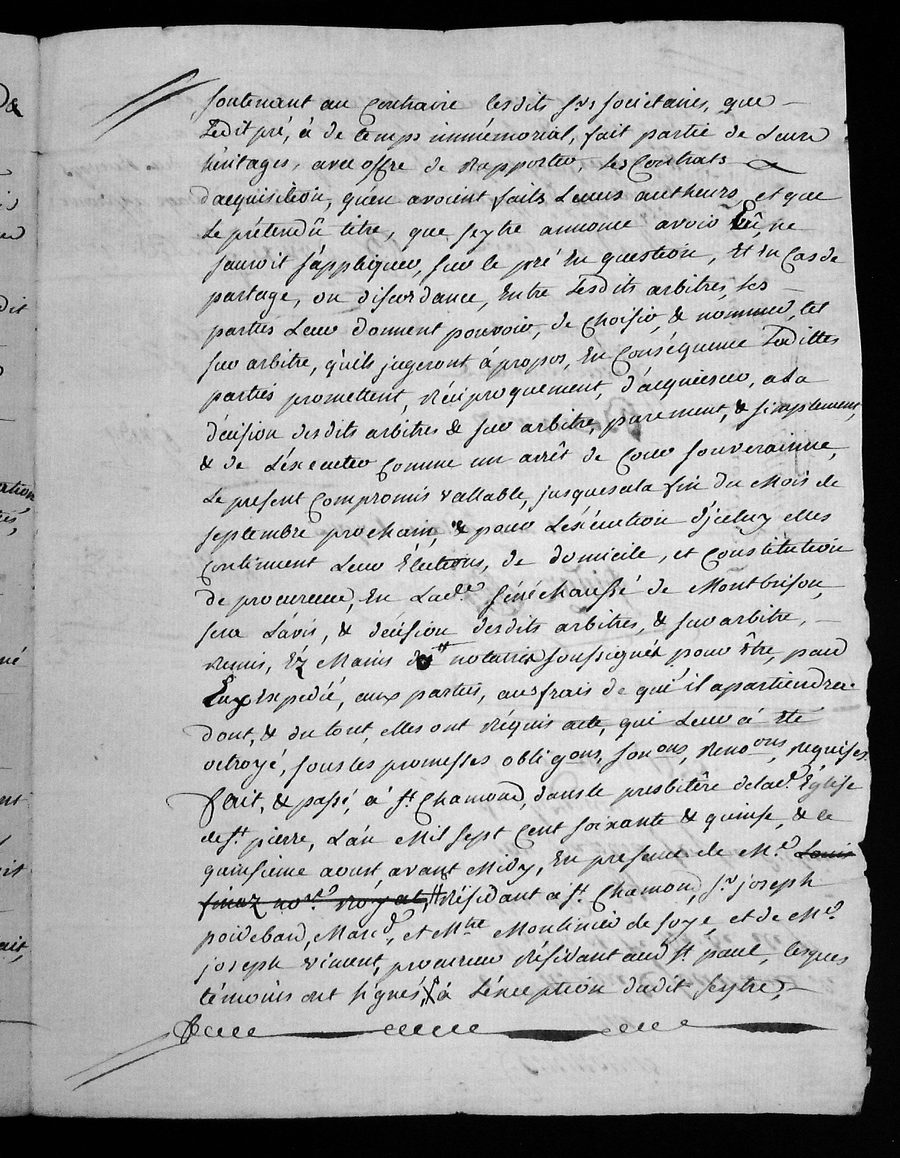 soutenant au Contraire lesdits srs societaires, que
Ledit pré, à de temps immémorial, fait partie de Leurs
héritages, avec offre de Rapporter, les Contrats
d'acquisition, qu'en avoient faits Leurs autheurs, et que
Le prétendû titre, que seytre annonce avoir Eû, ne
sauroit s'appliquer, sur le pré En question, Et En Cas de
partage, ou discordance, Entre Lesdits arbitres, les
parties Leur donnent pouvoir, de Choisir, & nommer, tel
sur arbitre, qu'ils jugeront à propos, En Conséquence Lesdittes
parties promettent, Réciproquement, d'acquiescer, a La
décision desdits arbitres & sur arbitre, purement, & simplement,
& de L'éxecuter Comme un arrêt de Cour souverainne,
Le present Compromis vallable, jusques a la fin du Mois de
septembre prochain, & pour L'éxécution d'jceluy elles
Continuent Leur Élections, de domicile, et Constitution
de procureur, En Lad.e sénéchaussé de Montbrison,
sera L'avis, & décision desdits arbitres, & sur arbitre,
Remis, Ez Mains des notaires soussignés pour être, par
Eux Expedié, aux parties, aux frais de qui il apartiendra.
dont, & du tout, elles ont Réquis acte, qui Leur à été
octroyé, sous les promesses obligons, son ons, Reno ons, requises.
fait, & passé, à St. Chamond, dans le presbitère de lad. Église
de St. pierre, L'an Mil sept Cent soixante & quinse, & le
quinsieme aoust avant Midy, En presence de M.e Louis
finaz no.re Royal, Résidant à St. Chamond, sr. joseph
poidebard, Marc.d, et M.tre Moulinier de soye, et de M.e
joseph vincent, procureur Résidant aud. St. paul, lesques
témoins ont signés, à L'éxception dudit seytre,